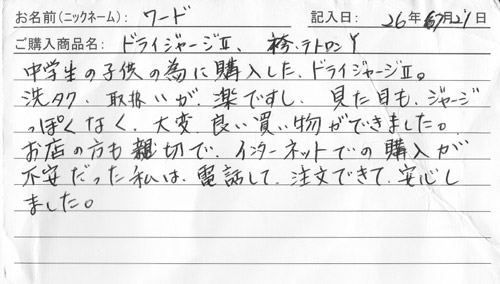 お名前(ニックネーム): ワード 記入日: 26年 月21日
ご購入商品名: ドライジャージⅡ、袴、テトロン
中学生の子供の為に購入した、ドライジャージⅡ。
洗タク、取扱いが、楽ですし、見た目も、ジャージ
っぽくなく、大変、良い買い物ができました。
お店の方も親切で、インターネットでの購入が
不安だった私は、電話して、注文できて、安心し
ました。